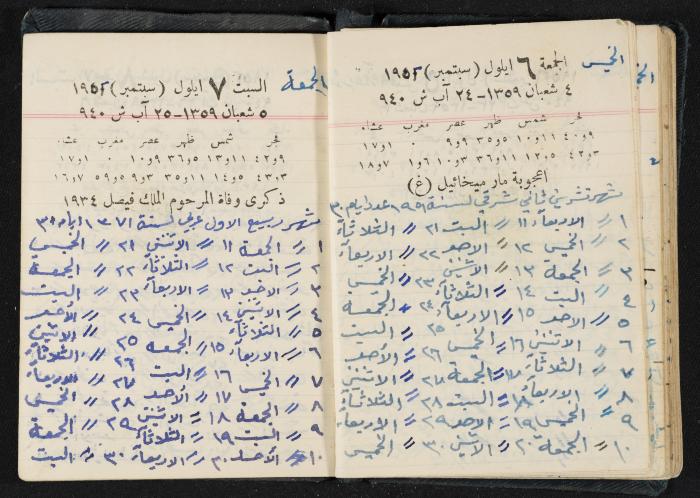 الخميس
الجمعة ٦ ايلول (سبتمبر) ١٩٥٢
٤ شعبان ١٣٥٩ - ٢٤ آب ش ٩٤٠
فجر شمس ظهر عصر مغرب عشاء
٩و٤٠ ١١و١٠ ٥و٣٥ ٩و٩ ٠ ١و١٧
٣و٤٢ ٥و١٢ ١١و٣٦ ٣و١٠ ٦و١ ٧و١٨
اعجوبة مار ميخائيل (غ)
شهر تشرين ثاني شرقي لسنة ١٩٥١ عدد ايام ٣٠
١ // الاربعاء ١١ // السبت ٢١ // الثلاثاء
٢ // الخميس ١٢ // الاحد ٢٢ // الاربعاء
٣ // الجمعة ١٣ // الاثنين ٢٣ // الخميس
٤ // السبت ١٤ // الثلاثاء ٢٤ // الجمعة
٥ // الاحد ١٥ // الاربعاء ٢٥ // السبت
٦ // الاثنين ١٦ // الخميس ٢٦ // الاحد
٧ // الثلاثاء ١٧ // الجمعة ٢٧ // الاثنين
٨ // الاربعاء ١٨ // السبت ٢٨ // الثلاثاء
٩ // الخميس ١٩ // الاحد ٢٩ // الاربعاء
١٠ // الجمعة ٢٠ // الاثنين ٣٠ // الخميس
الجمعة
السبت ٧ ايلول (سبتمبر) ١٩٥٢
٥ شعبان ١٣٥٩ - ٢٥ آب ش ٩٤٠
فجر شمس ظهر عصر مغرب عشاء
٩و٤٢ ١١و١٣ ٥و٣٦ ٩و١٠ ٠ ١و١٧
٣و٤٣ ٥و١٤ ١١و٣٥ ٣و٩ ٥و٥٩ ٧و١٦
ذكرى وفاة المرحوم الملك فيصل ١٩٣٤
شهر ربيع الاول عربي لسنة ١٣٧١ ايام ٣٠
١ // الجمعة ١١ // الاثنين ٢١ // الخميس
٢ // السبت ١٢ // الثلاثاء ٢٢ // الجمعة
٣ // الاحد ١٣ // الاربعاء ٢٣ // السبت
٤ // الاثنين ١٤ // الخميس ٢٤ // الأحد
٥ // الثلاثاء ١٥ // الجمعة ٢٥ // الاثنين
٦ // الاربعاء ١٦ // السبت ٢٦ // الثلاثاء
٧ // الخميس ١٧ // الأحد ٢٧ // الاربعاء
٨ // الجمعة ١٨ // الاثنين ٢٨ // الخميس
٩ // السبت ١٩ // الثلاثاء ٢٩ // الجمعة
١٠ // الأحد ٢٠ // الاربعاء ٣٠ // السبت